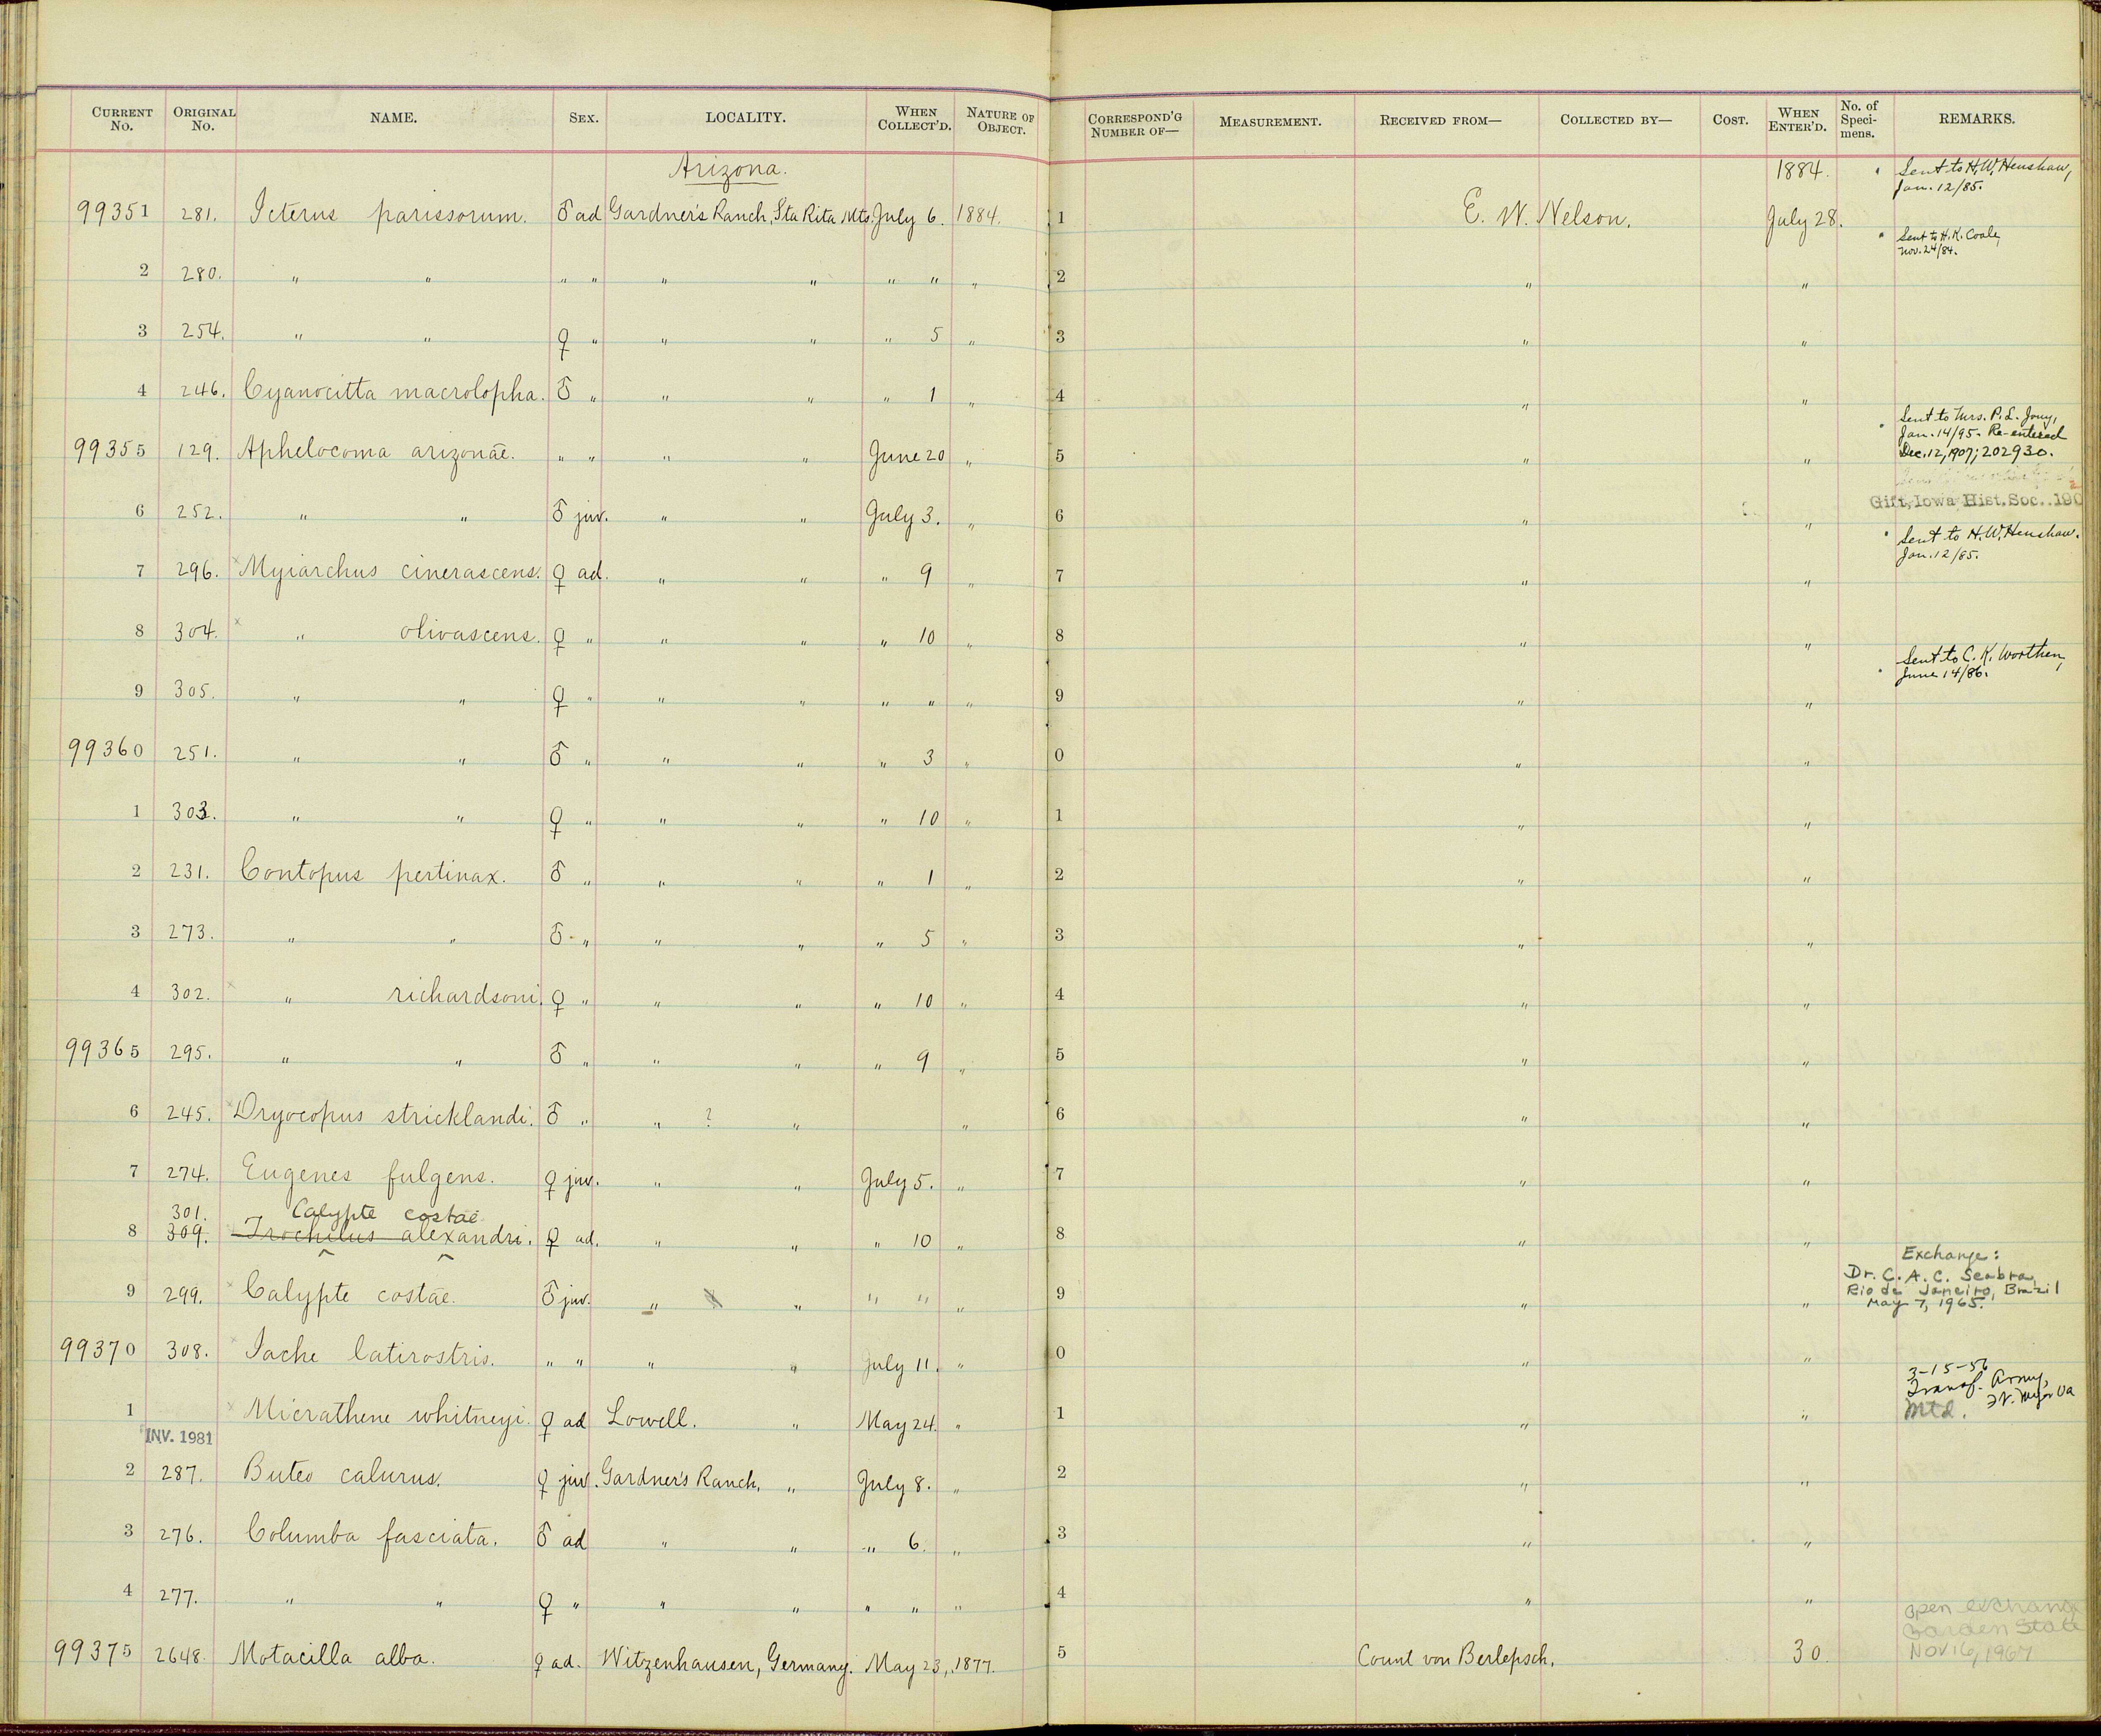 CURRENT No. ORIGINAL No. NAME. SEX. LOCALITY. WHEN COLLECT'D. NATURE OF OBJECT. CORRESPOND'G NUMBER OF— MEASUREMENT. RECEIVED FROM— COLLECTED BY— COST. WHEN ENTER'D. No. of Specimens. REMARKS.
Arizona. 1884. Sent to H.W. Henshaw, Jan. 12/85.
99351 281. Icterus parissorum. ♂ ad Gardner's Ranch, Sta Rita Mts July 6. 1884. 1 E. W. Nelson. July 28.
Sent to H. K. Coale, Nov. 24/84.
2 280. " " " " " " " " " 2 " "
3 254. " " ♀ " " " " 5 " 3 " "
4 246. Cyanocitta macrolopha. ♂ " " " " 1 " 4 " "
Sent to Mrs. P. L. Jouy, Jan. 14/95. Re-entered Dec. 12, 1907; 202930.
99355 129. Aphelocoma arizonae. " " " " June 20 " 5 " "
Gift, Iowa Hist. Soc. 190
6 252. " " ♂ juv. " " July 3. " 6 " "
Sent to H. W. Henshaw. Jan. 12/85.
7 296. Myiarchus cinerascens. ♀ ad. " " " 9 " 7 " "
8 304. " olivascens. ♀ " " " " 10 " 8 " "
Sent to C. K. Worthen, June 14/86.
9 305. " " ♀ " " " " " " 9 " "
99360 251. " " ♂ " " " " 3 " 0 " "
1 303. " " ♀ " " " " 10 " 1 " "
2 231. Contopus pertinax. ♂ " " " " 1 " 2 " "
3 273. " " ♂ " " " " 5 " 3 " "
4 302. " richardsoni. ♀ " " " " 10 " 4 " "
99365 295. " " ♂ " " " " 9 " 5 " "
6 245. Dryocopus stricklandi. ♂ " " ? " " 6 " "
7 274. Eugenes fulgens. ♀ juv. " " July 5. " 7 " "
301. Calypte costae
8 309. Trochilus alexandri. ♀ ad. " " " 10 " 8 " "
Exchange:
Dr. C. A. C. Seabra,
Rio de Janeiro, Brazil
May 7, 1965.
9 299. Calypte costae. ♂ juv. " " " " " 9 " "
99370 308. Iache latirostris. " " " " July 11. " 0 " "
3-15-56
Transf. Army,
Ft. Myer Va
Mtd.
1 Micrathene whitneyi. ♀ ad Lowell. " May 24. " 1 " "
INV. 1981
2 287. Buteo calurus. ♀ juv. Gardner's Ranch, " July 8. " 2 " "
3 276. Columba fasciata. ♂ ad " " " 6. " 3 " "
4 277. " " ♀ " " " " " " 4 " "
open exchang
Garden State
Nov 16, 1967
99375 2648. Motacilla alba. ♀ ad. Witzenhausen, Germany. May 23, 1877. 5 Count von Berlepsch. 30.